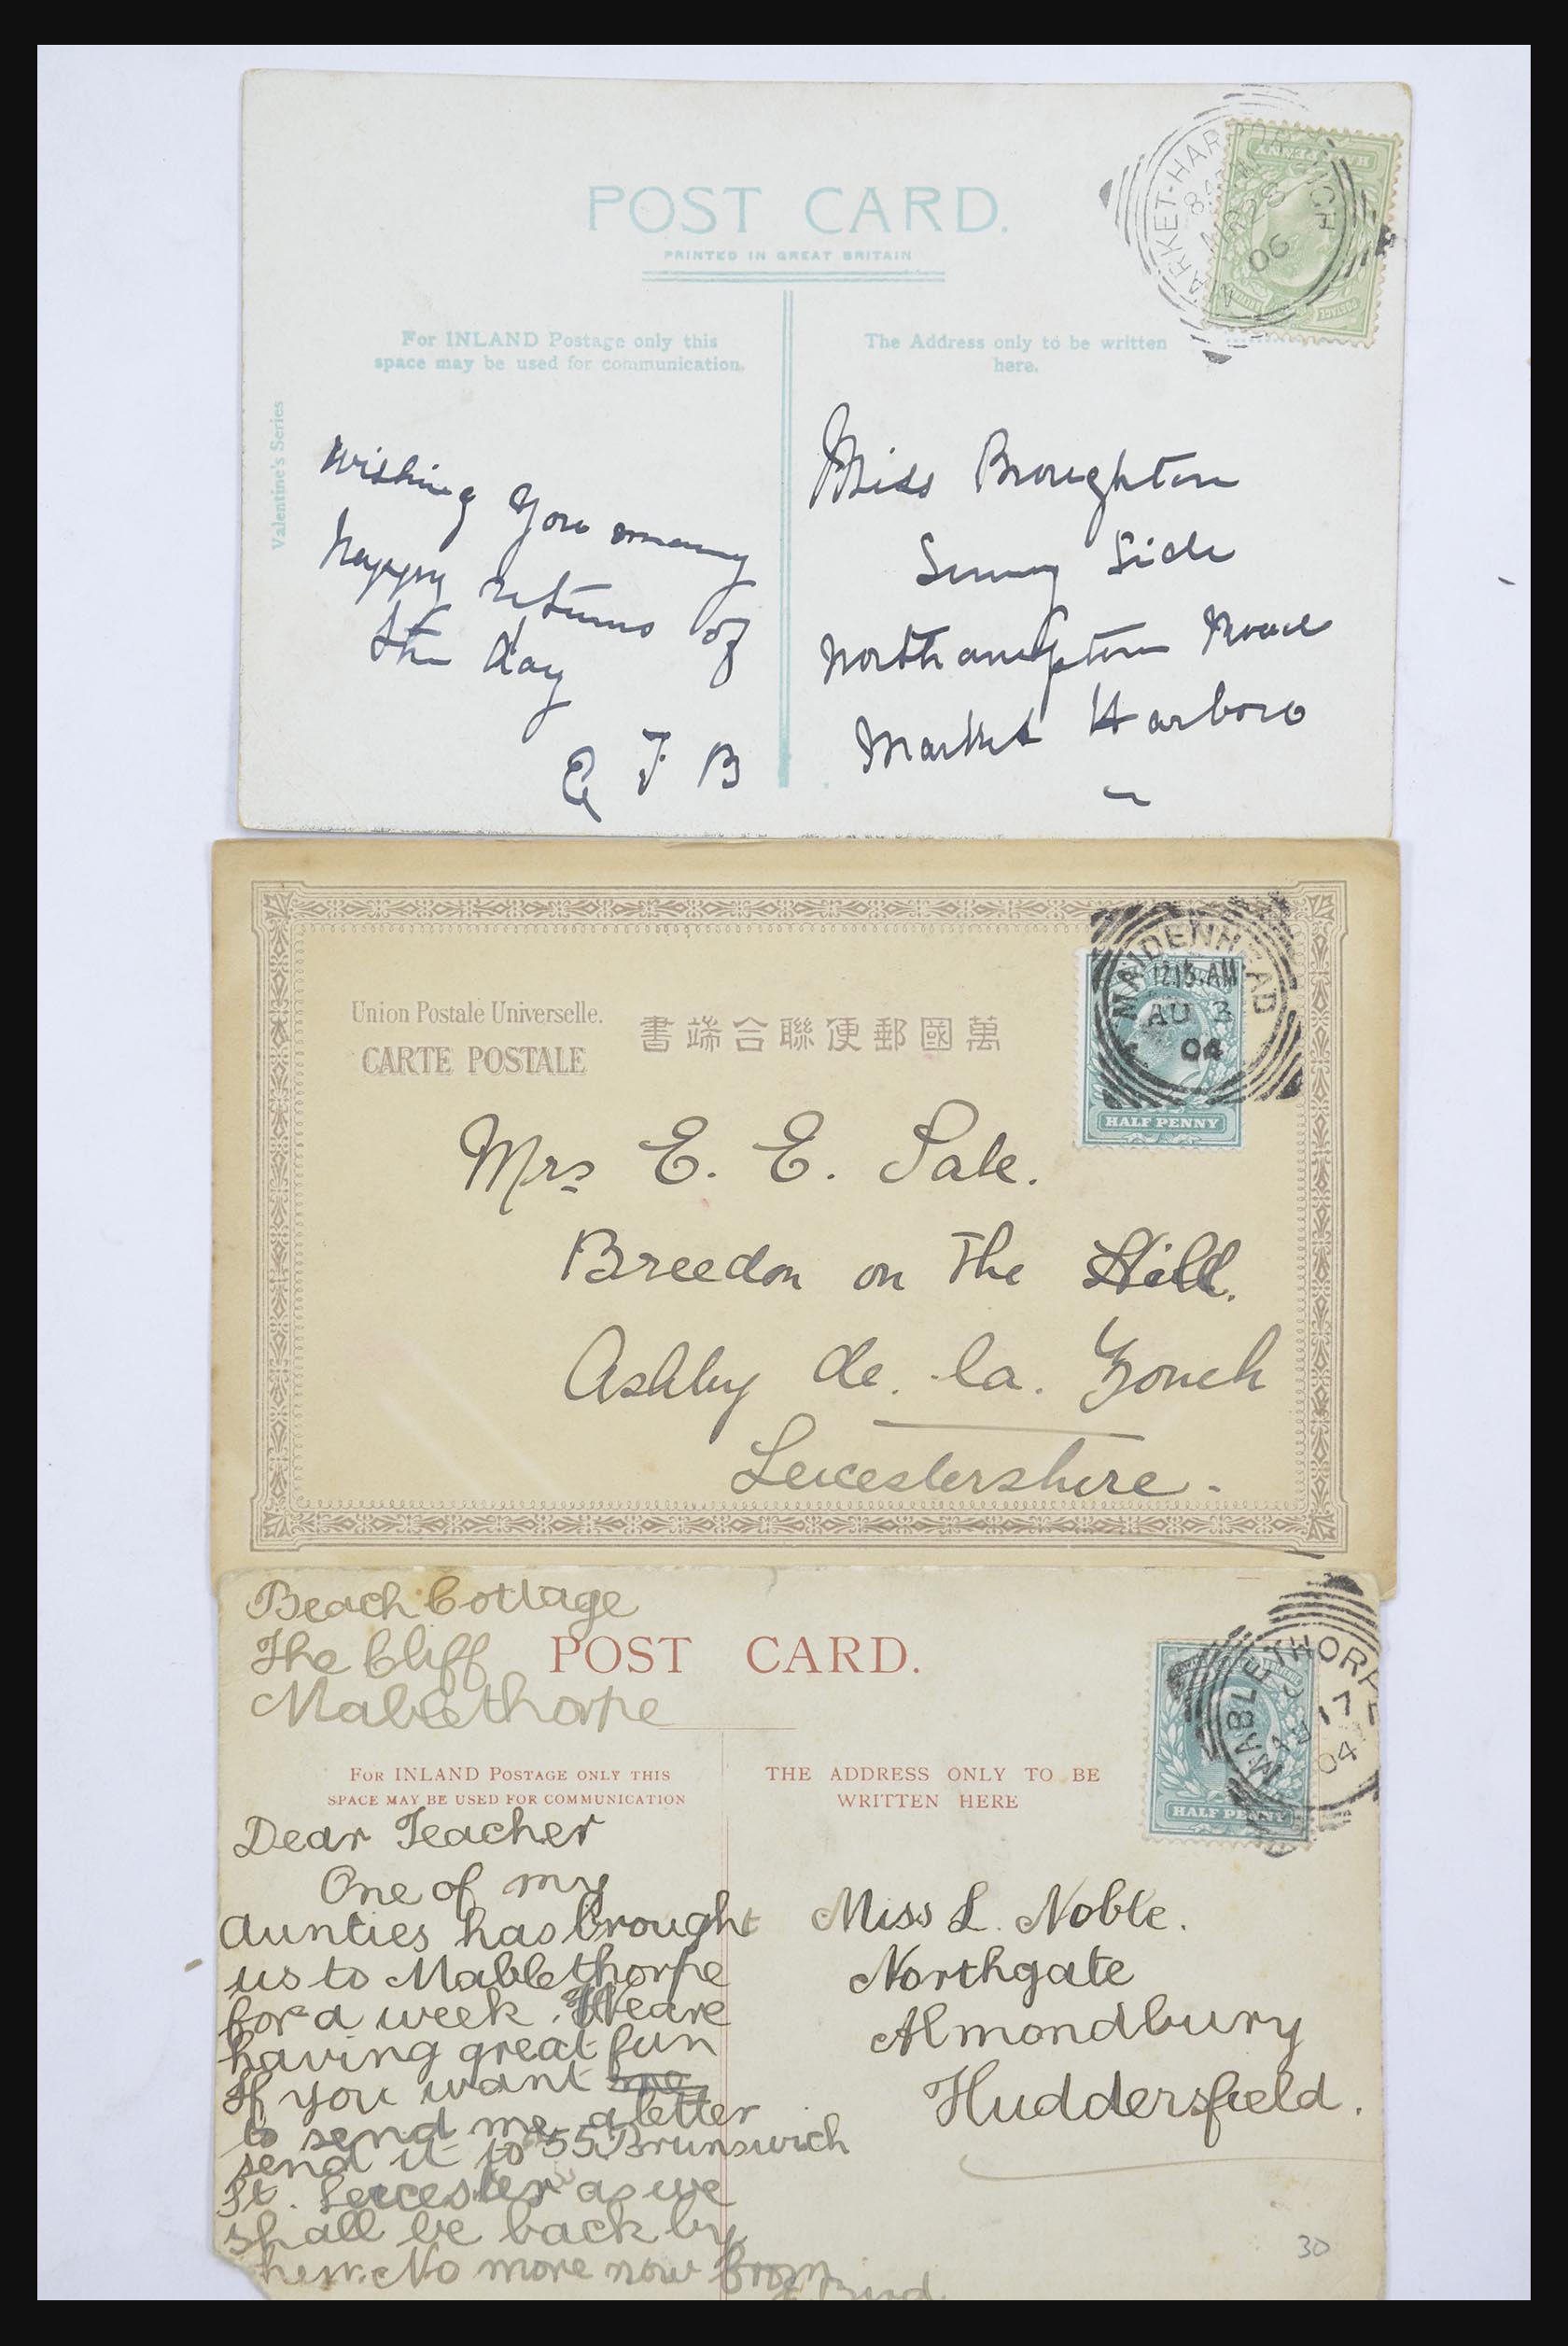 POST CARD.
PRINTED IN GREAT BRITAIN
For INLAND Postage only this
space may be used for communication.
The Address only to be written
here.
Valentine's Series
MARKET-HARBOROUGH
MR 28
06
Wishing you many
happy returns of
the day
E F B
Miss Broughton
Sunny Side
Northampton Road
Market Harboro
Union Postale Universelle.
CARTE POSTALE
書端合聯便郵國萬
MAIDENHEAD
12.15.AM
AU 3
04
HALF PENNY
Mrs E. E. Sale.
Breedon on The Hill.
Ashby de. la. Zouch
Leicestershire.
Beach Cottage
The Cliff
Mablethorpe
POST CARD.
FOR INLAND POSTAGE ONLY THIS
SPACE MAY BE USED FOR COMMUNICATION
THE ADDRESS ONLY TO BE
WRITTEN HERE
MABLETHORPE
17
04
HALF PENNY
Dear Teacher
One of my
Aunties has brought
us to Mablethorpe
for a week. We are
having great fun
If you want me
to send me a letter
send it to 55 Brunswich
St. Leicester as we
shall be back by
then. No more now from
Bird
Miss L. Noble.
Northgate
Almondbury
Huddersfield.
30